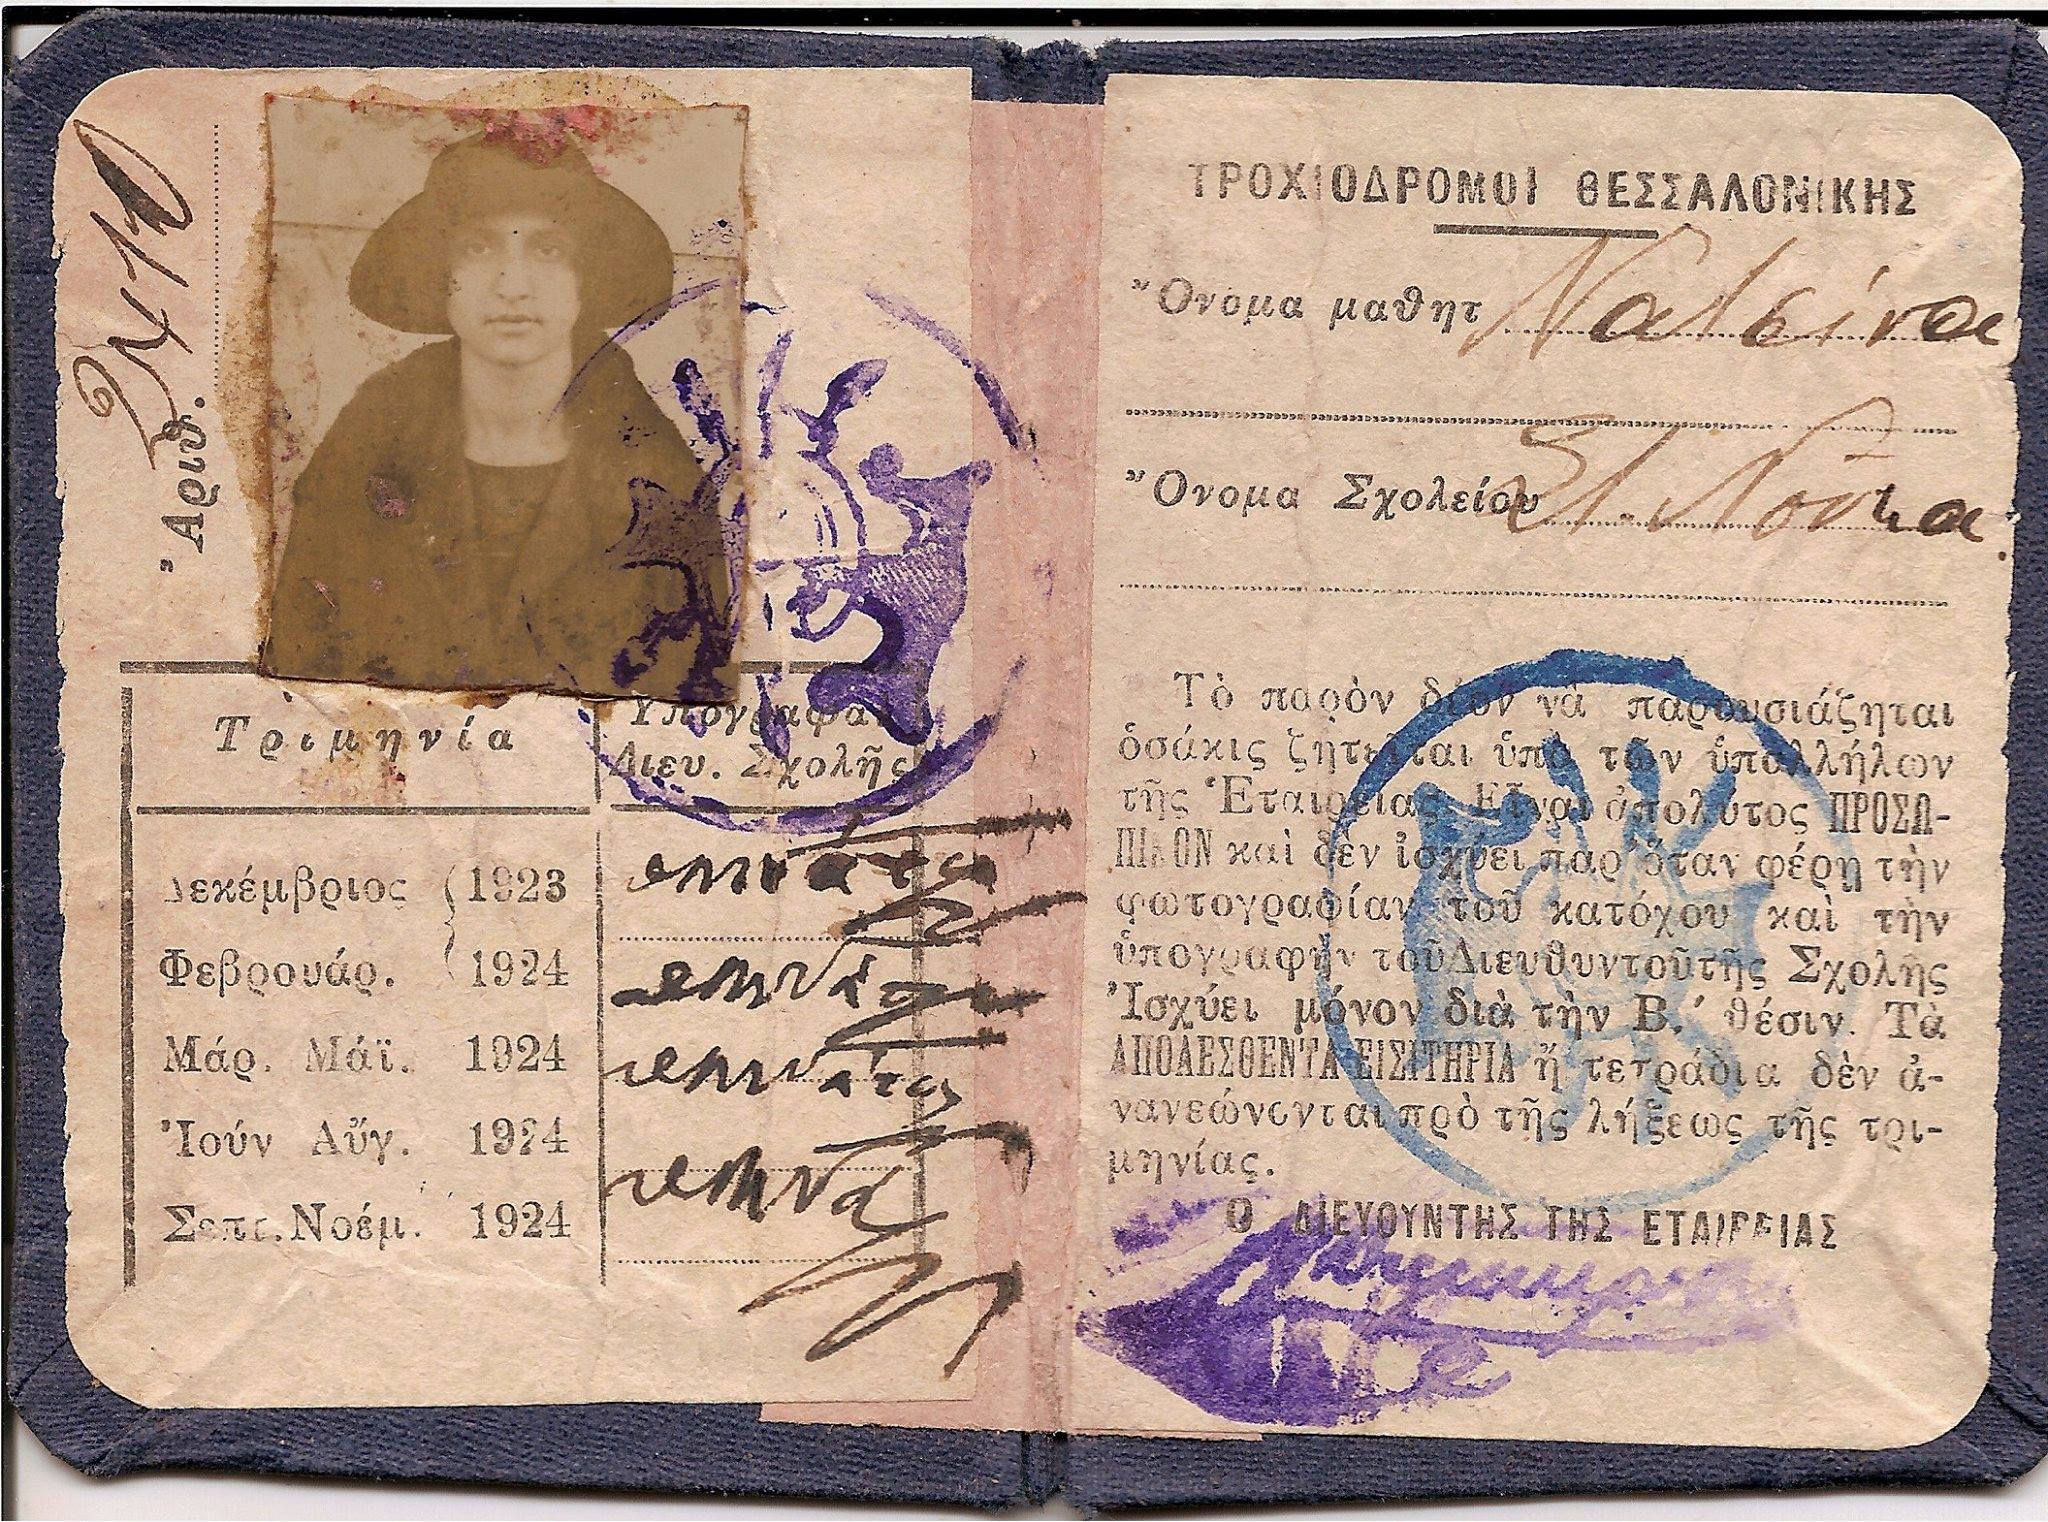 Ἀριθ. 2410
Τριμηνία
Ὑπογραφα
Διευ. Σχολῆς
Δεκέμβριος 1923
Φεβρουάρ. 1924
Μάρ. Μάϊ. 1924
Ἰούν Αὔγ. 1924
Σεπτ. Νοέμ. 1924
ΤΡΟΧΙΟΔΡΟΜΟΙ ΘΕΣΣΑΛΟΝΙΚΗΣ
Ὄνομα μαθητ
Ὄνομα Σχολείου
Τὸ παρὸν δέον νὰ παρουσιάζηται
ὁσάκις ζητεῖται ὑπὸ τῶν ὑπαλλήλων
τῆς Ἑταιρείας. Εἶναι ἀπολύτος ΠΡΟΣΩ-
ΠΙΚΟΝ καὶ δὲν ἰσχύει παρ' ὅταν φέρῃ τὴν
φωτογραφίαν τοῦ κατόχου καὶ τὴν
ὑπογραφὴν τοῦ Διευθυντοῦ τῆς Σχολῆς
Ἰσχύει μόνον διὰ τὴν Β.΄ θέσιν. Τὰ
ΑΠΟΛΕΣΘΕΝΤΑ ΕΙΣΙΤΗΡΙΑ ἢ τετράδια δὲν ἀ-
νανεώνονται πρὸ τῆς λήξεως τῆς τρι-
μηνίας.
Ο ΔΙΕΥΘΥΝΤΗΣ ΤΗΣ ΕΤΑΙΡΕΙΑΣ